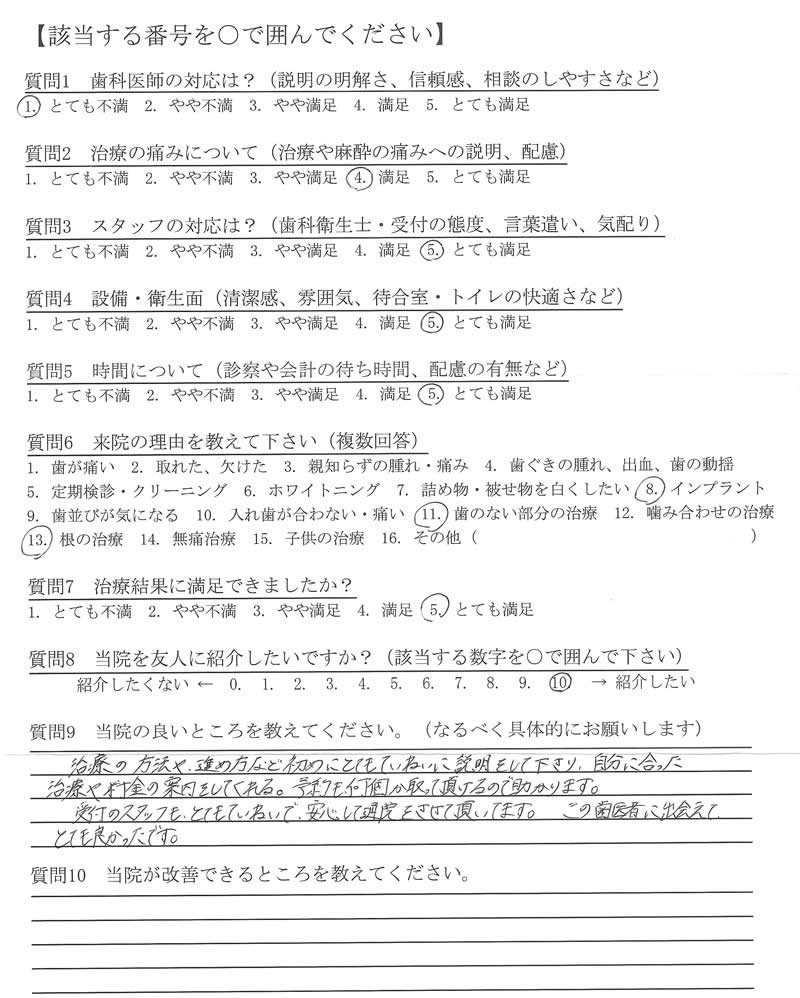 【該当する番号を〇で囲んでください】
質問1 歯科医師の対応は？（説明の明解さ、信頼感、相談のしやすさなど）
1. とても不満 2. やや不満 3. やや満足 4. 満足 5. とても満足
質問2 治療の痛みについて（治療や麻酔の痛みへの説明、配慮）
1. とても不満 2. やや不満 3. やや満足 4. 満足 5. とても満足
質問3 スタッフの対応は？（歯科衛生士・受付の態度、言葉遣い、気配り）
1. とても不満 2. やや不満 3. やや満足 4. 満足 5. とても満足
質問4 設備・衛生面（清潔感、雰囲気、待合室・トイレの快適さなど）
1. とても不満 2. やや不満 3. やや満足 4. 満足 5. とても満足
質問5 時間について（診察や会計の待ち時間、配慮の有無など）
1. とても不満 2. やや不満 3. やや満足 4. 満足 5. とても満足
質問6 来院の理由を教えて下さい（複数回答）
1. 歯が痛い 2. 取れた、欠けた 3. 親知らずの腫れ・痛み 4. 歯ぐきの腫れ、出血、歯の動揺
5. 定期検診・クリーニング 6. ホワイトニング 7. 詰め物・被せ物を白くしたい 8. インプラント
9. 歯並びが気になる 10. 入れ歯が合わない・痛い 11. 歯のない部分の治療 12. 噛み合わせの治療
13. 根の治療 14. 無痛治療 15. 子供の治療 16. その他（ ）
質問7 治療結果に満足できましたか？
1. とても不満 2. やや不満 3. やや満足 4. 満足 5. とても満足
質問8 当院を友人に紹介したいですか？（該当する数字を〇で囲んで下さい）
紹介したくない ← 0. 1. 2. 3. 4. 5. 6. 7. 8. 9. 10 → 紹介したい
質問9 当院の良いところを教えてください。（なるべく具体的にお願いします）
治療の方法や、進め方など初めにとてもていねいに説明をして下さり、自分に合った
治療や料金の案内をしてくれる。予約も何個か取って頂けるので助かります。
受付のスタッフも、とてもていねいで、安心して通院をさせて頂いてます。 この歯医者に出会えて
とても良かったです。
質問10 当院が改善できるところを教えてください。